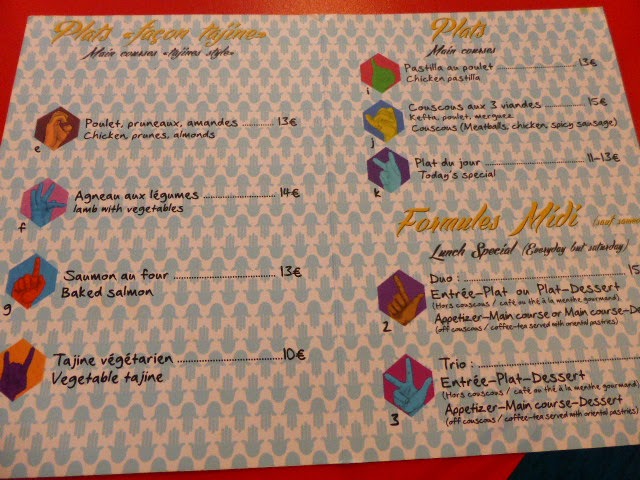 Plats «façon tajine»
Main courses «tajines style»
e
Poulet, pruneaux, amandes ........... 13€
Chicken, prunes, almonds
f
Agneau aux légumes ........................ 14€
lamb with vegetables
g
Saumon au four ................................ 13€
Baked salmon
Tajine végétarien ................................ 10€
Vegetable tajine
Plats
Main courses
i
Pastilla au poulet ........................ 13€
Chicken pastilla
j
Couscous aux 3 viandes ................ 15€
Kefta, poulet, merguez
Couscous (Meatballs, chicken, spicy sausage)
k
Plat du jour ................................ 11-13€
Today's special
Formules Midi (sauf
Lunch Special (Everyday but saturday)
2
Duo : ................................ 15
Entrée-Plat ou Plat-Dessert
(Hors couscous / café ou thé à la menthe gourmand)
Appetizer-Main course or Main course-
(off couscous / coffee-tea served with oriental pastries)
3
Trio : ................................
Entrée-Plat-Dessert
(Hors couscous / café ou thé à la menthe gourmand)
Appetizer-Main course-Dessert
(off couscous / coffee-tea served with oriental pastries)